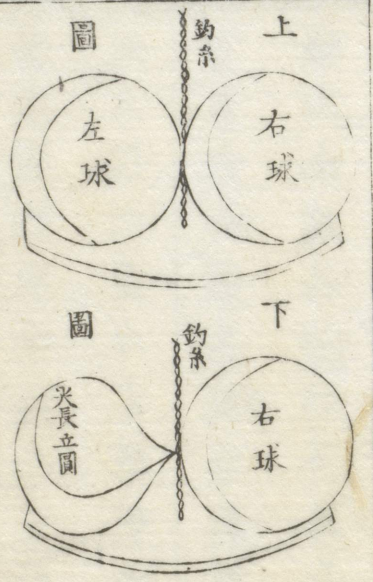 上圖
釣糸
右球
左球
下圖
釣糸
右球
尖長立圓